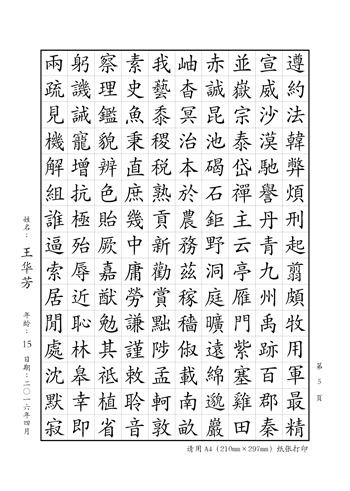 遵約法韓弊煩刑起翦頗牧用軍最精
宣威沙漠馳譽丹青九州禹跡百郡秦
並嶽宗泰岱禪主云亭雁門紫塞雞田
赤誠昆池碣石鉅野洞庭曠遠綿邈巖
岫杳冥治本於農務茲稼穡俶載南畝
我藝黍稷稅熟貢新勸賞黜陟孟軻敦
素史魚秉直庶幾中庸勞謙謹敕聆音
察理鑑貌辨色貽厥嘉猷勉其祗植省
躬譏誡寵增抗極殆辱近恥林皋幸即
兩疏見機解組誰逼索居閒處沈默寂
姓名：王华芳 年龄：15 日期：二〇一六年四月
第 5 页
请用A4（210mm×297mm）纸张打印